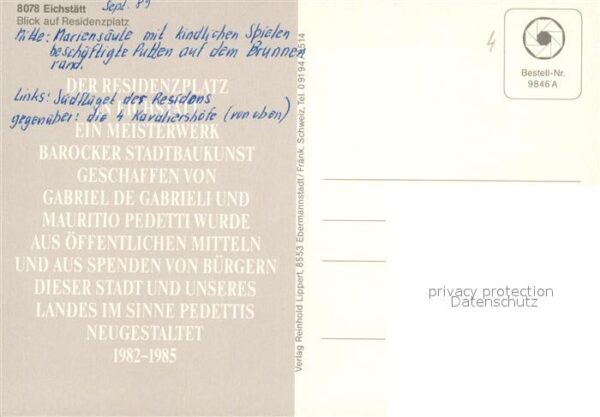 8078 Eichstätt Sept. 89
Blick auf Residenzplatz
Mitte: Mariensäule mit kindlichen Spielen
beschäftigte Putten auf dem Brunnen
rand.
Links: Südflügel der Residens
gegenüber: die 4 Kavaliershöfe (von oben)
DER RESIDENZPLATZ
IN EICHSTÄTT
EIN MEISTERWERK
BAROCKER STADTBAUKUNST
GESCHAFFEN VON
GABRIEL DE GABRIELI UND
MAURITIO PEDETTI WURDE
AUS ÖFFENTLICHEN MITTELN
UND AUS SPENDEN VON BÜRGERN
DIESER STADT UND UNSERES
LANDES IM SINNE PEDETTIS
NEUGESTALTET
1982–1985
Verlag Reinhold Lippert, 8553 Ebermannstadt / Fränk. Schweiz, Tel. 0 91 94 / 514
4
Bestell-Nr.
9846 A
privacy protection
Datenschutz